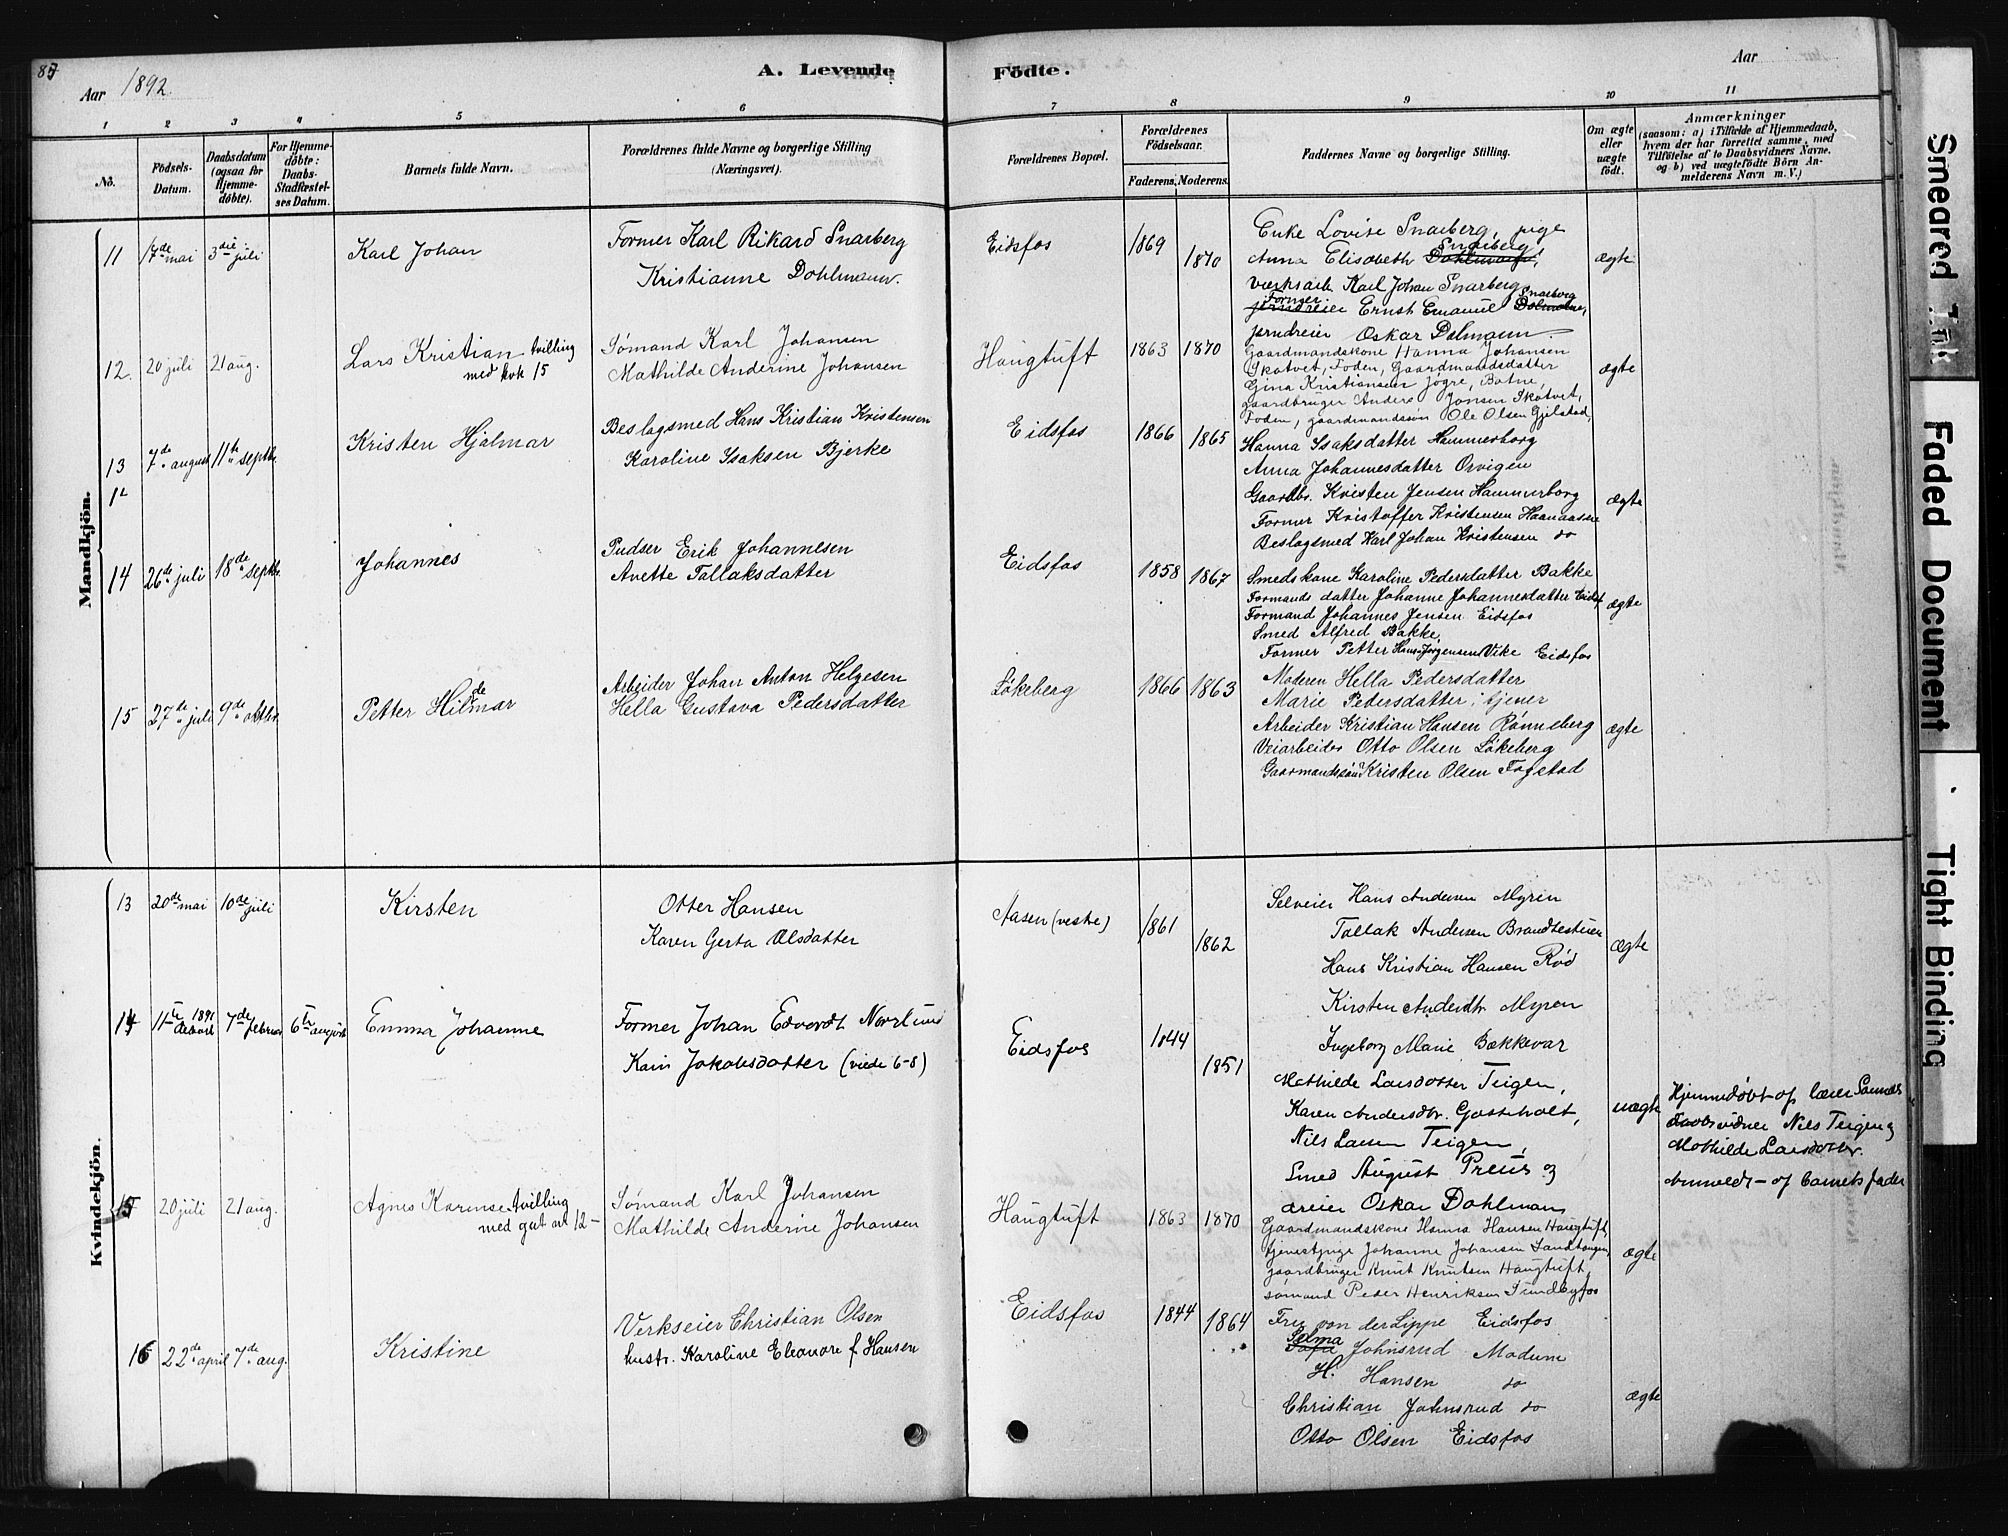 89
Aar 1892.
A. Levende Födte.
Aar
1 2 3 4 5 6 7 8 9 10 11
No.
Födsels-Datum.
Daabsdatum (ogsaa for Hjemme-döbte).
For Hjemme-döbte: Daabs-Stadfæstel-ses Datum.
Barnets fulde Navn.
Forældrenes fulde Navne og borgerlige Stilling (Næringsvei).
Forældrenes Bopæl.
Forældrenes Födselsaar.
Faderens. Moderens.
Faddernes Navne og borgerlige Stilling.
Om ægte eller uægte födt.
Anmærkninger
(saasom: a) i Tilfælde af Hjemmedaab, hvem der har forrettet samme, med Tilföielse af to Daabsvidners Navne. og b) ved uægtefödte Börn An-melderens Navn m. V.)
Mandkjön.
11 17de mai 3die juli
Karl Johan
Former Karl Rikard Snarberg
Kristianne Dohlmann.
Eidsfos
1869 1870
Enke Lovise Snarberg, pige
Anna Elisabeth Snarberg
værksarb Karl Johan Snarberg
Former Ernst Emanuel Snarberg
jerndreier Oskar Dolmann
ægte
12. 20 juli 21 aug.
Lars Kristian tvilling
med kvk 15
Sømand Karl Johansen
Mathilde Anderine Johansen
Haugtuft
1863 1870
Gaardmandskone Hanna Johansen
Skotvet, Foden, Gaardmandsdatter
Gina Kristiansen Jøgre, Botne,
gaardbruger Anders Jonsen Skotvet,
Foden, gaardmandssøn Ole Olsen Gjelstad,
ægte
13 7de august 11te septbr.
Kristen Hjalmar
Beslagsmed Hans Kristian Kristensen
Karoline Isaksen Bjerke
Eidsfos
1866 1865
Hanna Isaksdatter Hammerborg
Anna Johannesdatter Orvigen
Gaardbr. Kristen Jensen Hammerborg
Former Kristoffer Kristensen Haanaasene
Beslagsmed Karl Johan Kristensen do
ægte
14 26de juli 18de septbr.
Johannes
Pudser Erik Johannesen
Anette Tollaksdatter
Eidsfos
1858 1867
Smedskone Karoline Pedersdatter Bakke
Formands datter Johanne Johannesdatter Eidsf
Formand Johannes Jensen Eidsfos
Smed Alfred Bakke,
Former Petter Hans Jørgensen Vike Eidsfos
ægte
15 27de juli 9de oktbr.
Petter Hildemar
Arbeider Johan Anton Helgesen
Hella Gustava Pedersdatter
Løkeberg
1866 1863
Moderen Hella Pedersdatter
Marie Pedersdatter, tjener
Arbeider Kristian Hansen Rønneberg
Veiarbeider Otto Olsen Løkeberg
Gaarmandssøn Kristen Olsen Fogstad
ægte
Kvindekjön.
13 20de mai 10de juli
Kirsten
Otter Hansen
Karen Gerta Olsdatter
Aasen (vestre)
1861 1862
Selveier Hans Andersen Myren
Tollak Andersen Brandtestuen
Hans Kristian Hansen Rød
Kirsten Andersdtr Myren
Ingeborg Marie Bækkevar
ægte
14 11te 1891 7de februar 6te august
Emma Johanne
Former Johan Edvardt Norrlund
Karin Jakobsdatter (viede 6-8)
Eidsfos
1844 1851
Mathilde Larsdatter Teigen,
Karen Andersdtr. Gotteholt,
Nils Larsen Teigen,
Smed August Preus og
dreier Oskar Dohlman
uægte
Hjemmedøbt af lærer
Daabsvidner Nils Teigen og
Mathilde Larsdatter.
Anmeldt – af barnets fader
15 20 juli 21 aug.
Agnes Karense tvilling
med gut nr 12 –
Sømand Karl Johansen
Mathilde Anderine Johansen
Haugtuft
1863 1870
Gaardmandskone Hanna Hansen Haugtuft,
tjenestpige Johanne Johansen Sandtangen,
gaardbruger Knut Knutsen Haugtuft,
sømand Peder Henriksen Sundbyfos
ægte
16 22de april 7de aug.
Kristine
Verkseier Christian Olsen
hustr. Karoline Eleonore f. Hansen
Eidsfos
1844 1864
Fru von der Lippe Eidsfos
Selma Johnsrud Modum
H. Hansen do
Christian Johnsrud do
Otto Olsen Eidsfos
ægte
Smeared Ink
Faded Document
Tight Binding